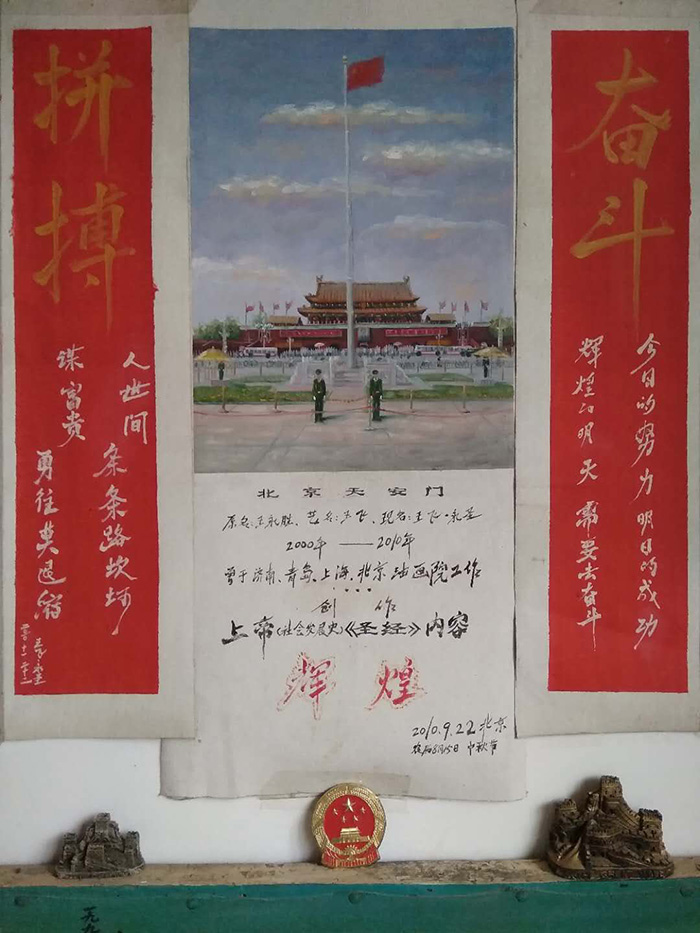 奋斗
今日的努力明日的成功
辉煌的明天需要去奋斗
北京天安门
原名:王永胜、艺名:王飞、现名:王飞·永圣
2000年——2010年
曾于济南、青岛、上海、北京油画院工作
创作
上帝(社会发展史)《圣经》内容
辉煌
2010.9.22北京
8月15日 中秋节
拼搏
人世间
条条路坎坷
谋富贵
勇往莫退缩
王永圣
一九九